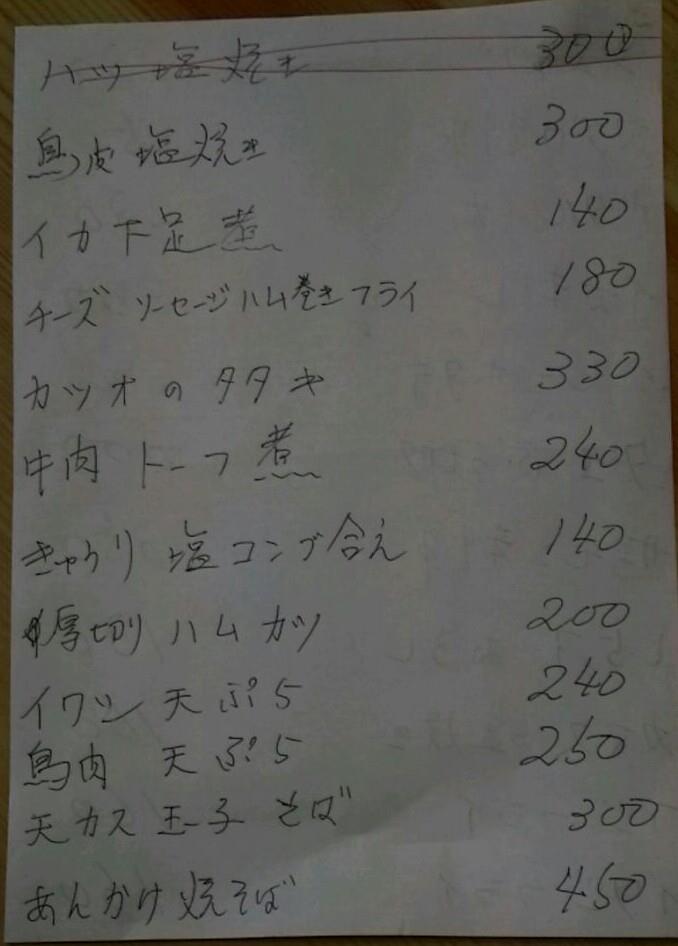 ハツ 塩焼き 300
鳥皮 塩焼き 300
イカ下足煮 140
チーズ ソーセージハム巻きフライ 180
カツオのタタキ 330
牛肉 トーフ煮 240
きゅうり 塩コンブ合え 140
厚切りハムカツ 200
イワシ 天ぷら 240
鳥肉 天ぷら 250
天カス 玉子 そば 300
あんかけ焼そば 450